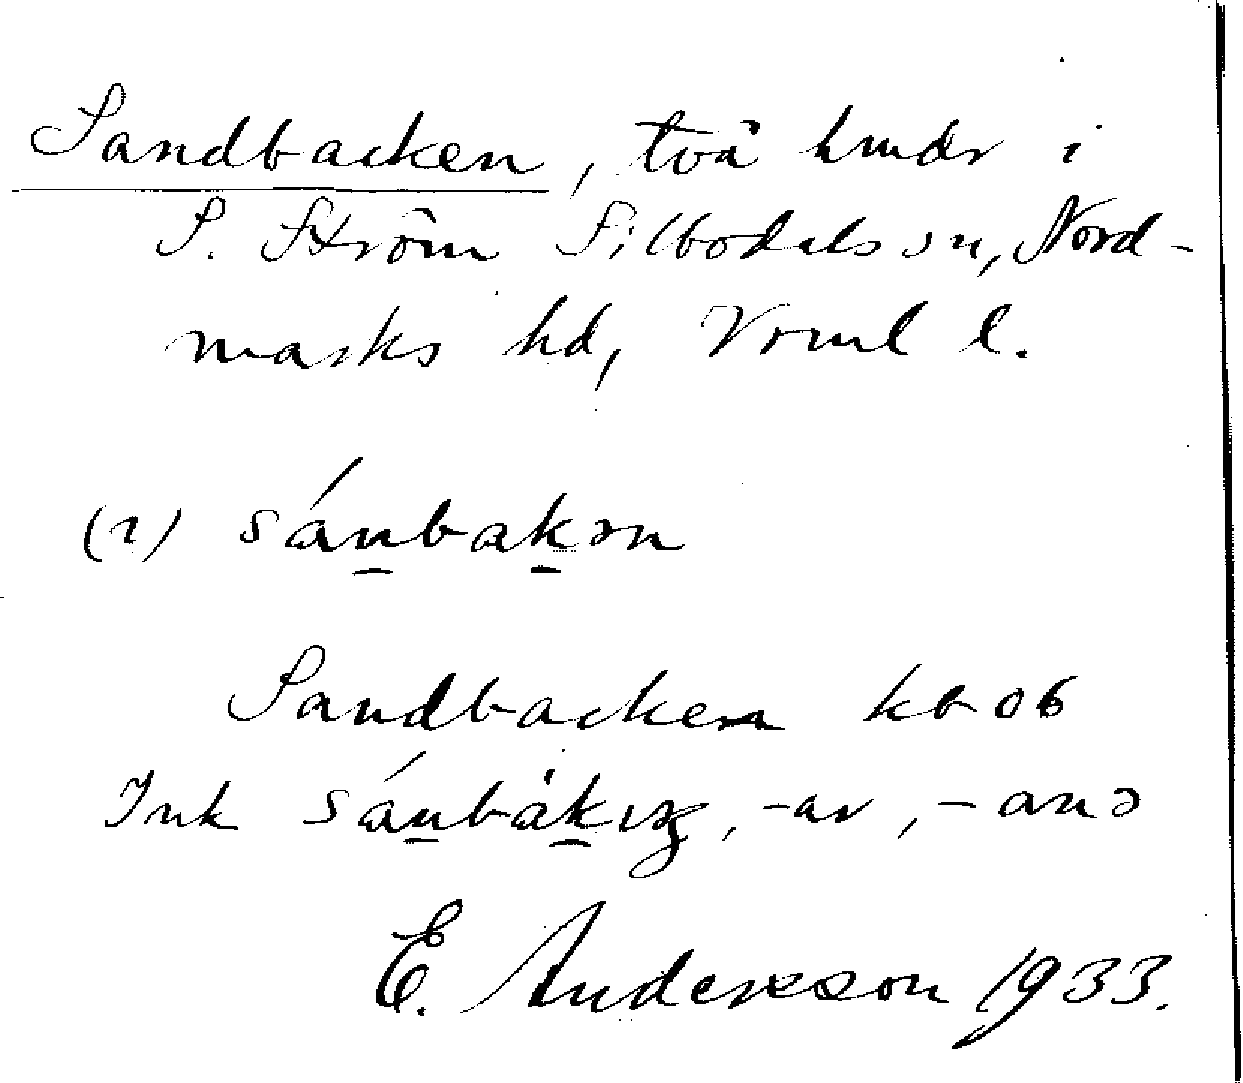 Sandbacken, två hmdr i
S. Ström Silbodals sn, Nord-
marks hd, Vrml l.
(i) sánbakən
Sandbacken kb 06
Ink sánbàkıŋ, -ar, -anə
E. Andersson 1933.